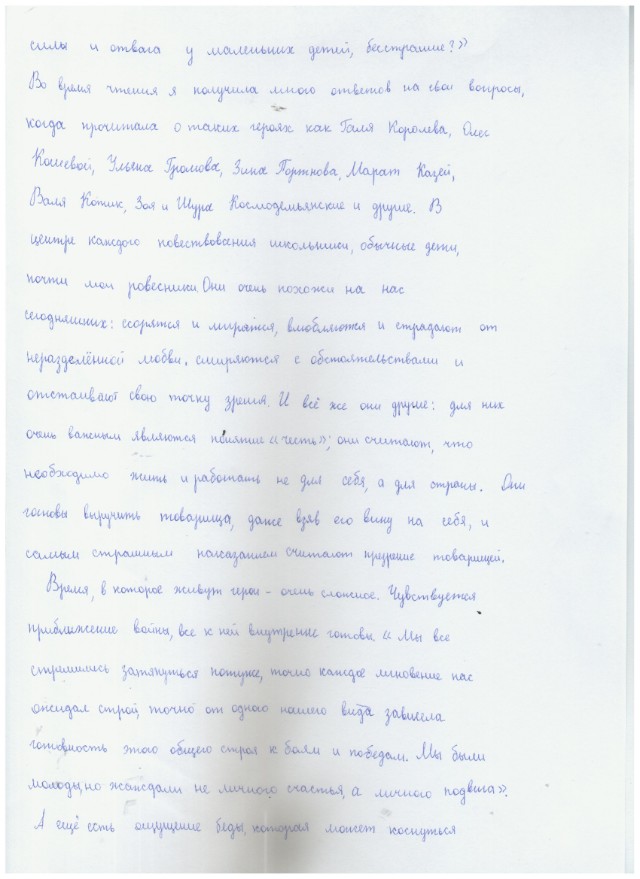 силы и отвага у маленьких детей, бесстрашие?»
Во время чтения я получила много ответов на свои вопросы,
когда прочитала о таких героях как Галя Королева, Олег
Кошевой, Ульяна Громова, Зина Портнова, Марат Казей,
Валя Котик, Зоя и Шура Космодемьянские и другие. В
центре каждого повествования школьники, обычные дети,
почти мои ровесники. Они очень похожи на нас
сегодняшних: ссорятся и мирятся, влюбляются и страдают от
неразделённой любви, смиряются с обстоятельствами и
отстаивают свою точку зрения. И всё же они другие: для них
очень важным являются понятие «честь»; они считают, что
необходимо жить и работать не для себя, а для страны. Они
готовы выручить товарища, даже взяв его вину на себя, и
самым страшным наказанием считают презрение товарищей.
Время, в которое живут герои - очень сложное. Чувствуется
приближение войны, все к ней внутренне готовы. «Мы все
стремились затянуться потуже, точно каждое мгновение нас
ожидал строй, точно от одного нашего вида зависела
готовность этого общего строя к боям и победам. Мы были
молоды, но жаждали не личного счастья, а личного подвига».
А ещё есть ощущение беды, которая может коснуться